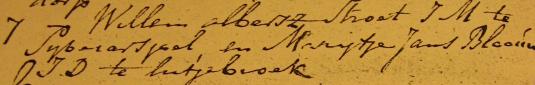 dorp
7 Willem albersz Stroet J M te
Sybecarspel en Marijtje Jans Bleeúw
J. D te lútjebroek